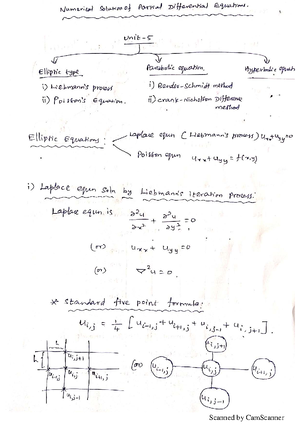 Numerical Solution of Partial Differential Equations.
unit-5
Elliptic type
Parabolic equation
Hyperbolic equn
i) Liebmann's process
ii) Poisson's Equation.
i) Bender-Schmidt method
ii) crank-nicholson Difference method
Elliptic Equations:
Laplace equn (Liebmann's process) uxx+uyy=0
Poisson equn uxx+uyy=f(x,y)
i) Laplace equn soln by Liebmann's iteration process:
Laplace equn is ∂²u/∂x² + ∂²u/∂y² = 0
(or) uxx + uyy = 0
(or) ∇²u = 0.
* Standard five point formula:
ui,j = 1/4 [ui-1,j + ui+1,j + ui,j-1 + ui,j+1].
h
ui-1,j
ui,j
ui+1,j
ui,j-1
(or)
ui,j+1
ui-1,j
ui,j
ui+1,j
ui,j-1
Scanned by CamScanner